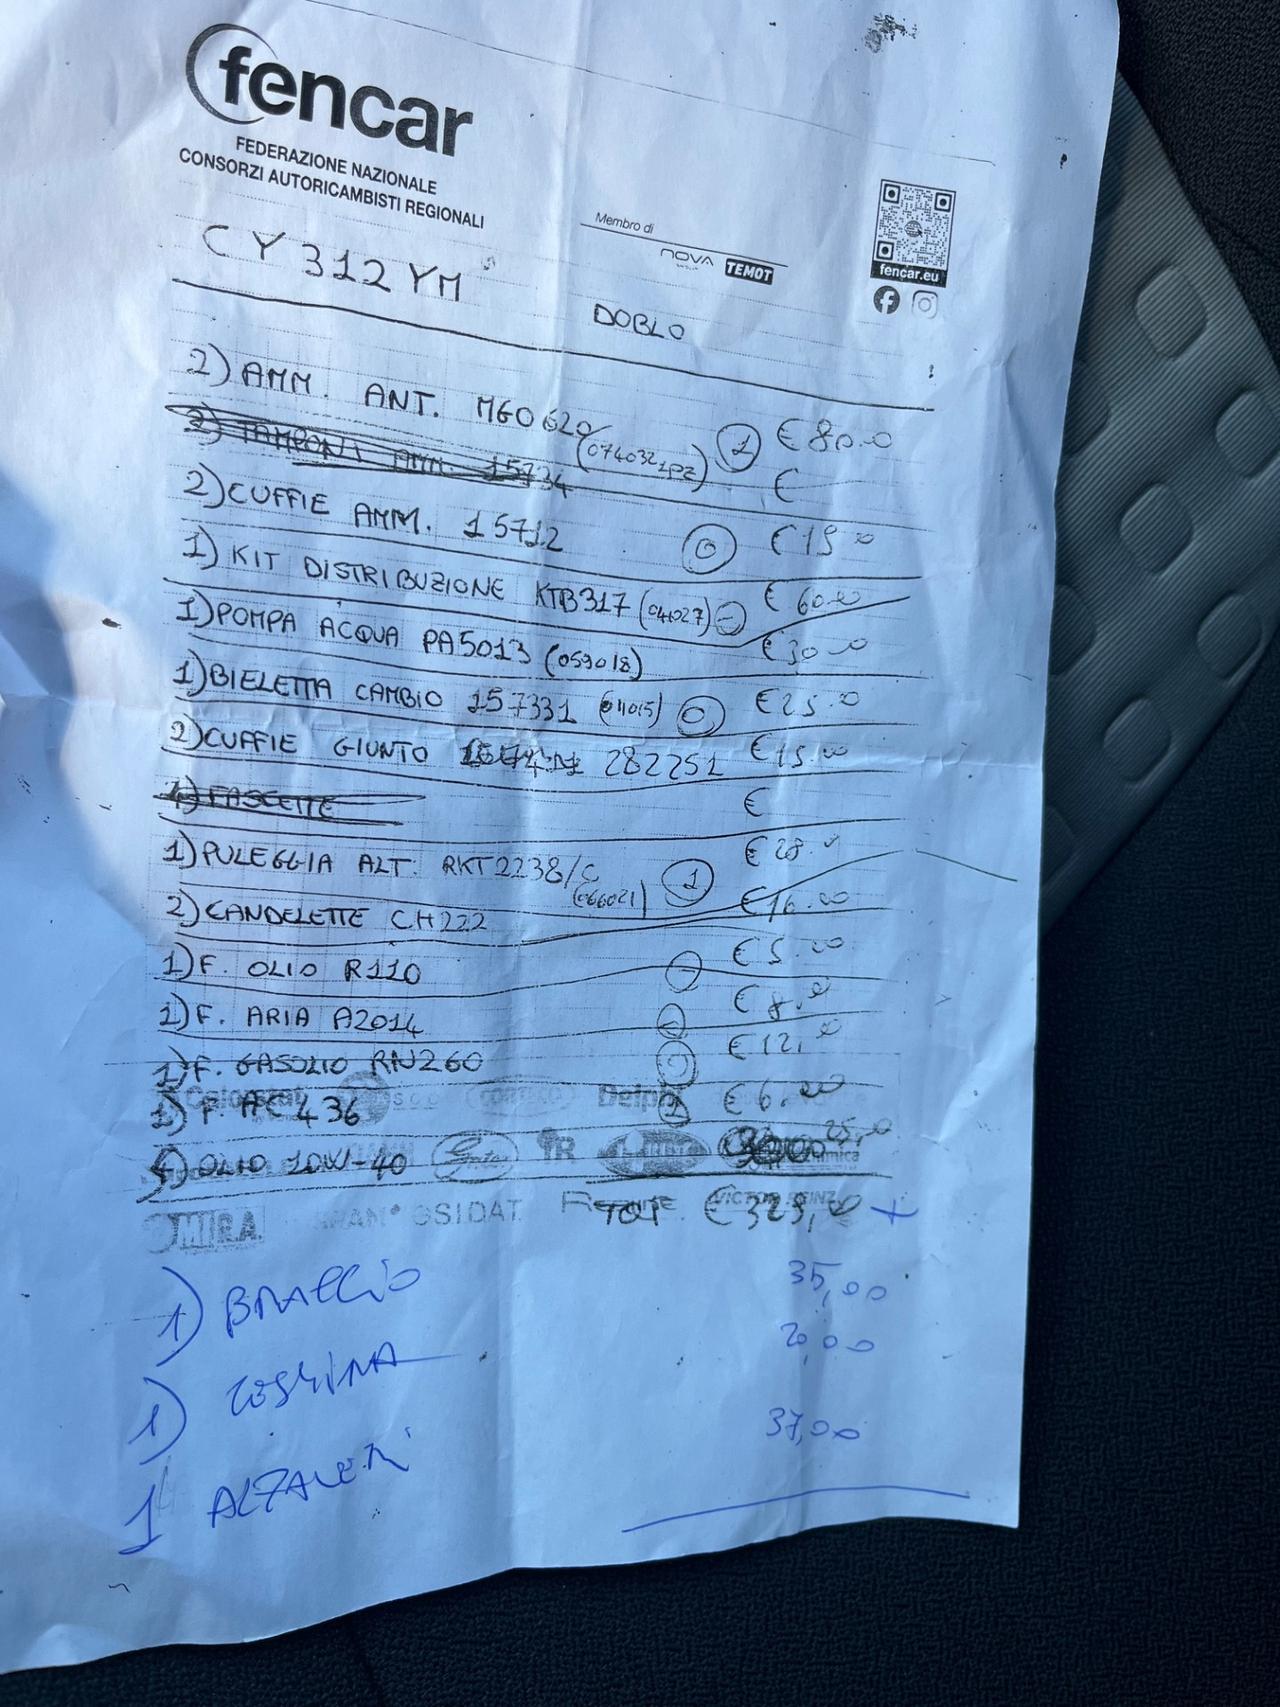 fencar
FEDERAZIONE NAZIONALE
CONSORZI AUTORICAMBISTI REGIONALI
Membro di
NOVA TEMOT
fencar.eu
CY312YM
DOBLO
2) AMM. ANT. MGO620 (0740321PZ) 1 € 80.00
2) TAMPONI AMM. 15734 €
2) CUFFIE AMM. 15712 0 € 15.00
1) KIT DISTRIBUZIONE KTB317 (04027) € 60.00
1) POMPA ACQUA PA5013 (059018) € 30.00
1) BIELETTA CAMBIO 157331 0 € 25.00
2) CUFFIE GIUNTO 282251 € 15.00
FASCETTE €
1) PULEGGIA ALT. RKT2238/C (066021) 1 € 28.00
2) CANDELETTE CH222 € 16.00
1) F. OLIO R110 € 5.00
1) F. ARIA A2014 € 8.00
1) F. GASOLIO RN260 € 12,00
1) F. AC 436 € 6.00
OLIO 10W-40 25,00
Delphi
MIRA OSIDAT
TOT € 325,00 +
1) BRACCIO 35,00
1) 20,00
1 37,00